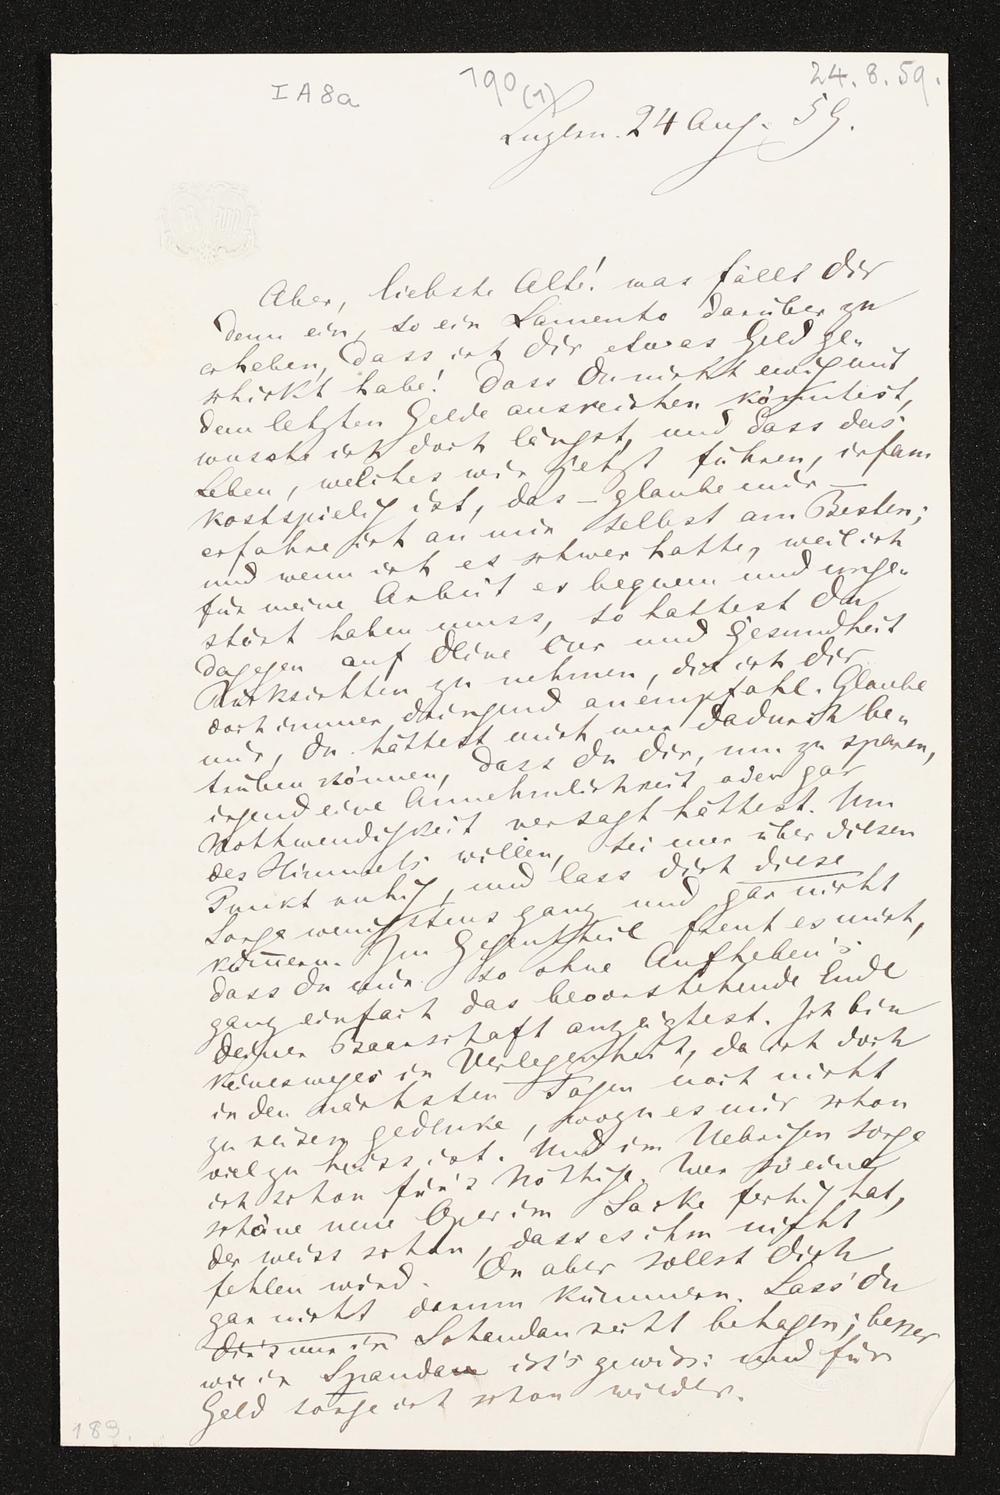 24.8.59.
I A 8a
190 (1)
Luzern. 24 Aug. 59.
Aber, liebste Alte! was fällt Dir
denn ein, so ein Lamento darüber zu
erheben, dass ich Dir etwas Geld ge-
schickt habe! Dass Du nicht ewig mit
dem letzten Gelde ausreichen könntest,
wusste ich doch längst, und dass das
Leben, welches wir jetzt führen, infam
kostspielig ist, das – glaube mir –
erfahre ich an mir selbst am Besten;
und wenn ich es schwer hatte, weil ich
für meine Arbeit es bequem und unge-
stört haben muss, so hattest Du
dagegen auf Deine Cur und Gesundheit
Rücksichten zu nehmen, die ich Dir
doch immer dringend anempfahl. Glaube
mir, Du hättest mich nur dadurch be-
trüben können, dass Du Dir, um zu sparen,
irgend eine Annehmlichkeit oder gar
Nothwendigkeit versagt hättest. Um
des Himmels willen, sei mir über diesen
Punkt ruhig, und lass Dich diese
Sorge wenigstens ganz und gar nicht
kümern. Im Gegentheil freut es mich,
dass Du mir so ohne Aufheben's
ganz einfach das bevorstehende Ende
deiner Baarschaft anzeigtest. Ich bin
keinesweges in Verlegenheit, da ich doch
in den nächsten Tagen noch nicht
zu reisen gedenke, wozu es mir schon
viel zu heiss ist. Und im Uebrigen sorge
ich schon für's Nöthige. Wer so eine
schöne neue Oper im Sacke fertig hat,
der weiss schon, dass es ihm nicht
fehlen wird. Du aber sollst Dich
gar nicht darum kümmern. Lass' Du
Dir's nur in Schandau recht behagen; besser
wie in Spandau ist's gewiss: und für
Geld sorge ich schon wieder.
189.